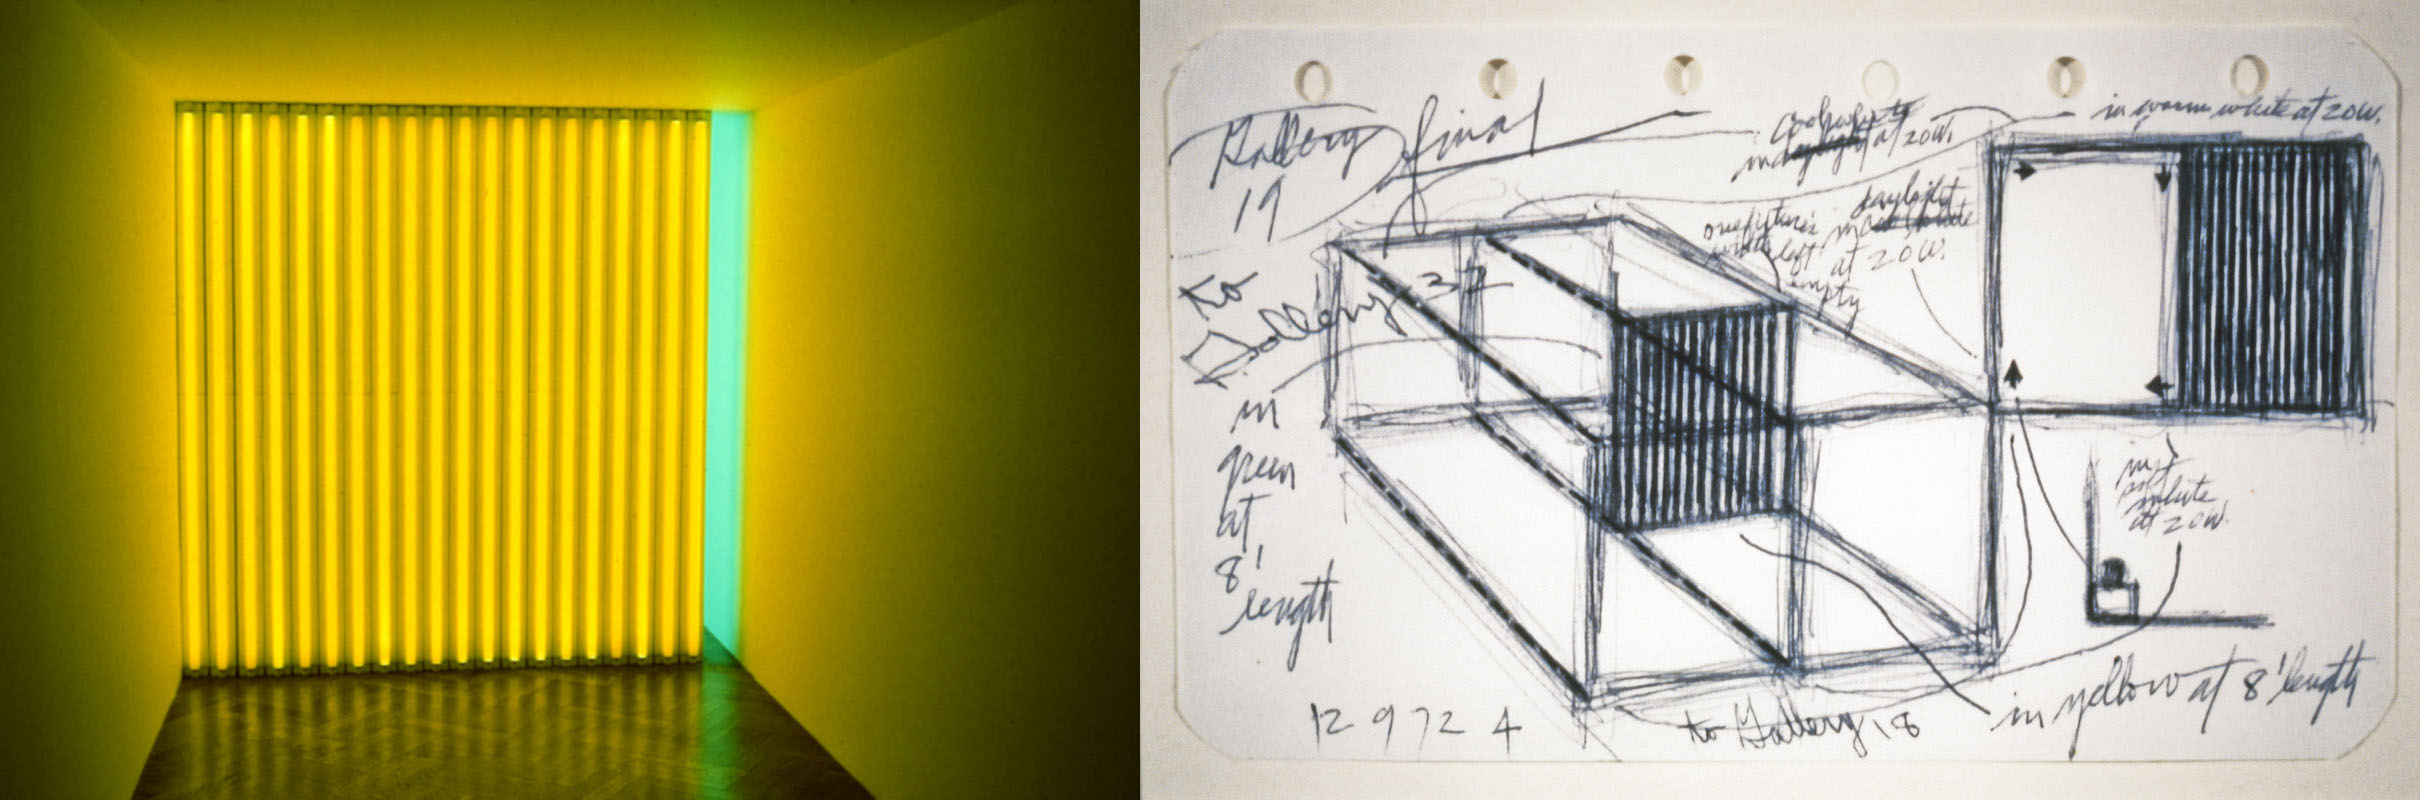 Gallery final
19
to
Gallery 32
in
green
at
8'
length
cool white
in daylight at 20W.
in warm white at 20W.
one fixture's
width left
empty
daylight
in cool white
at 20W.
in
soft
white
at 20W.
in yellow at 8' length
12 9 72 4
to Gallery 18